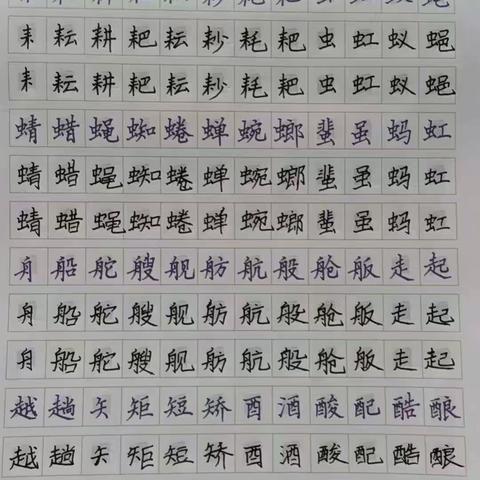 耒耘耕耙耘耖耗耙虫虹蚁蝇
耒耘耕耙耘耖耗耙虫虹蚁蝇
蜻蜡蝇蜘蜷蝉蜿螂蜚虽蚂虹
蜻蜡蝇蜘蜷蝉蜿螂蜚虽蚂虹
蜻蜡蝇蜘蜷蝉蜿螂蜚虽蚂虹
舟船舵艘舰舫航般舱舨走起
舟船舵艘舰舫航般舱舨走起
舟船舵艘舰舫航般舱舨走起
越趟矢矩短矫酉酒酸配酷酿
越趟矢矩短矫酉酒酸配酷酿